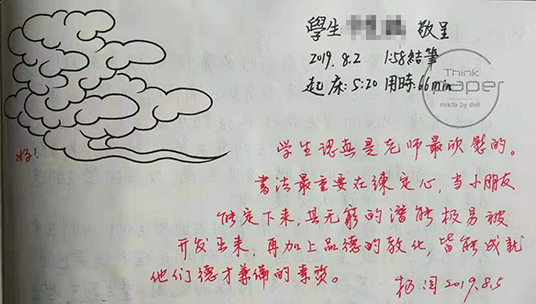 學生 敬呈
2019.8.2 1:58結筆
起床:5:20 用時:66min
Think
Paper
made by deli
好!
学生认真是老师最欣慰的。
書法最重要在練定心,当小朋友
能定下来,其无窮的潜能极易被
开发出来,再加上品德的教化,皆能成就
他们德才兼備的素质。
杨 2019.8.5